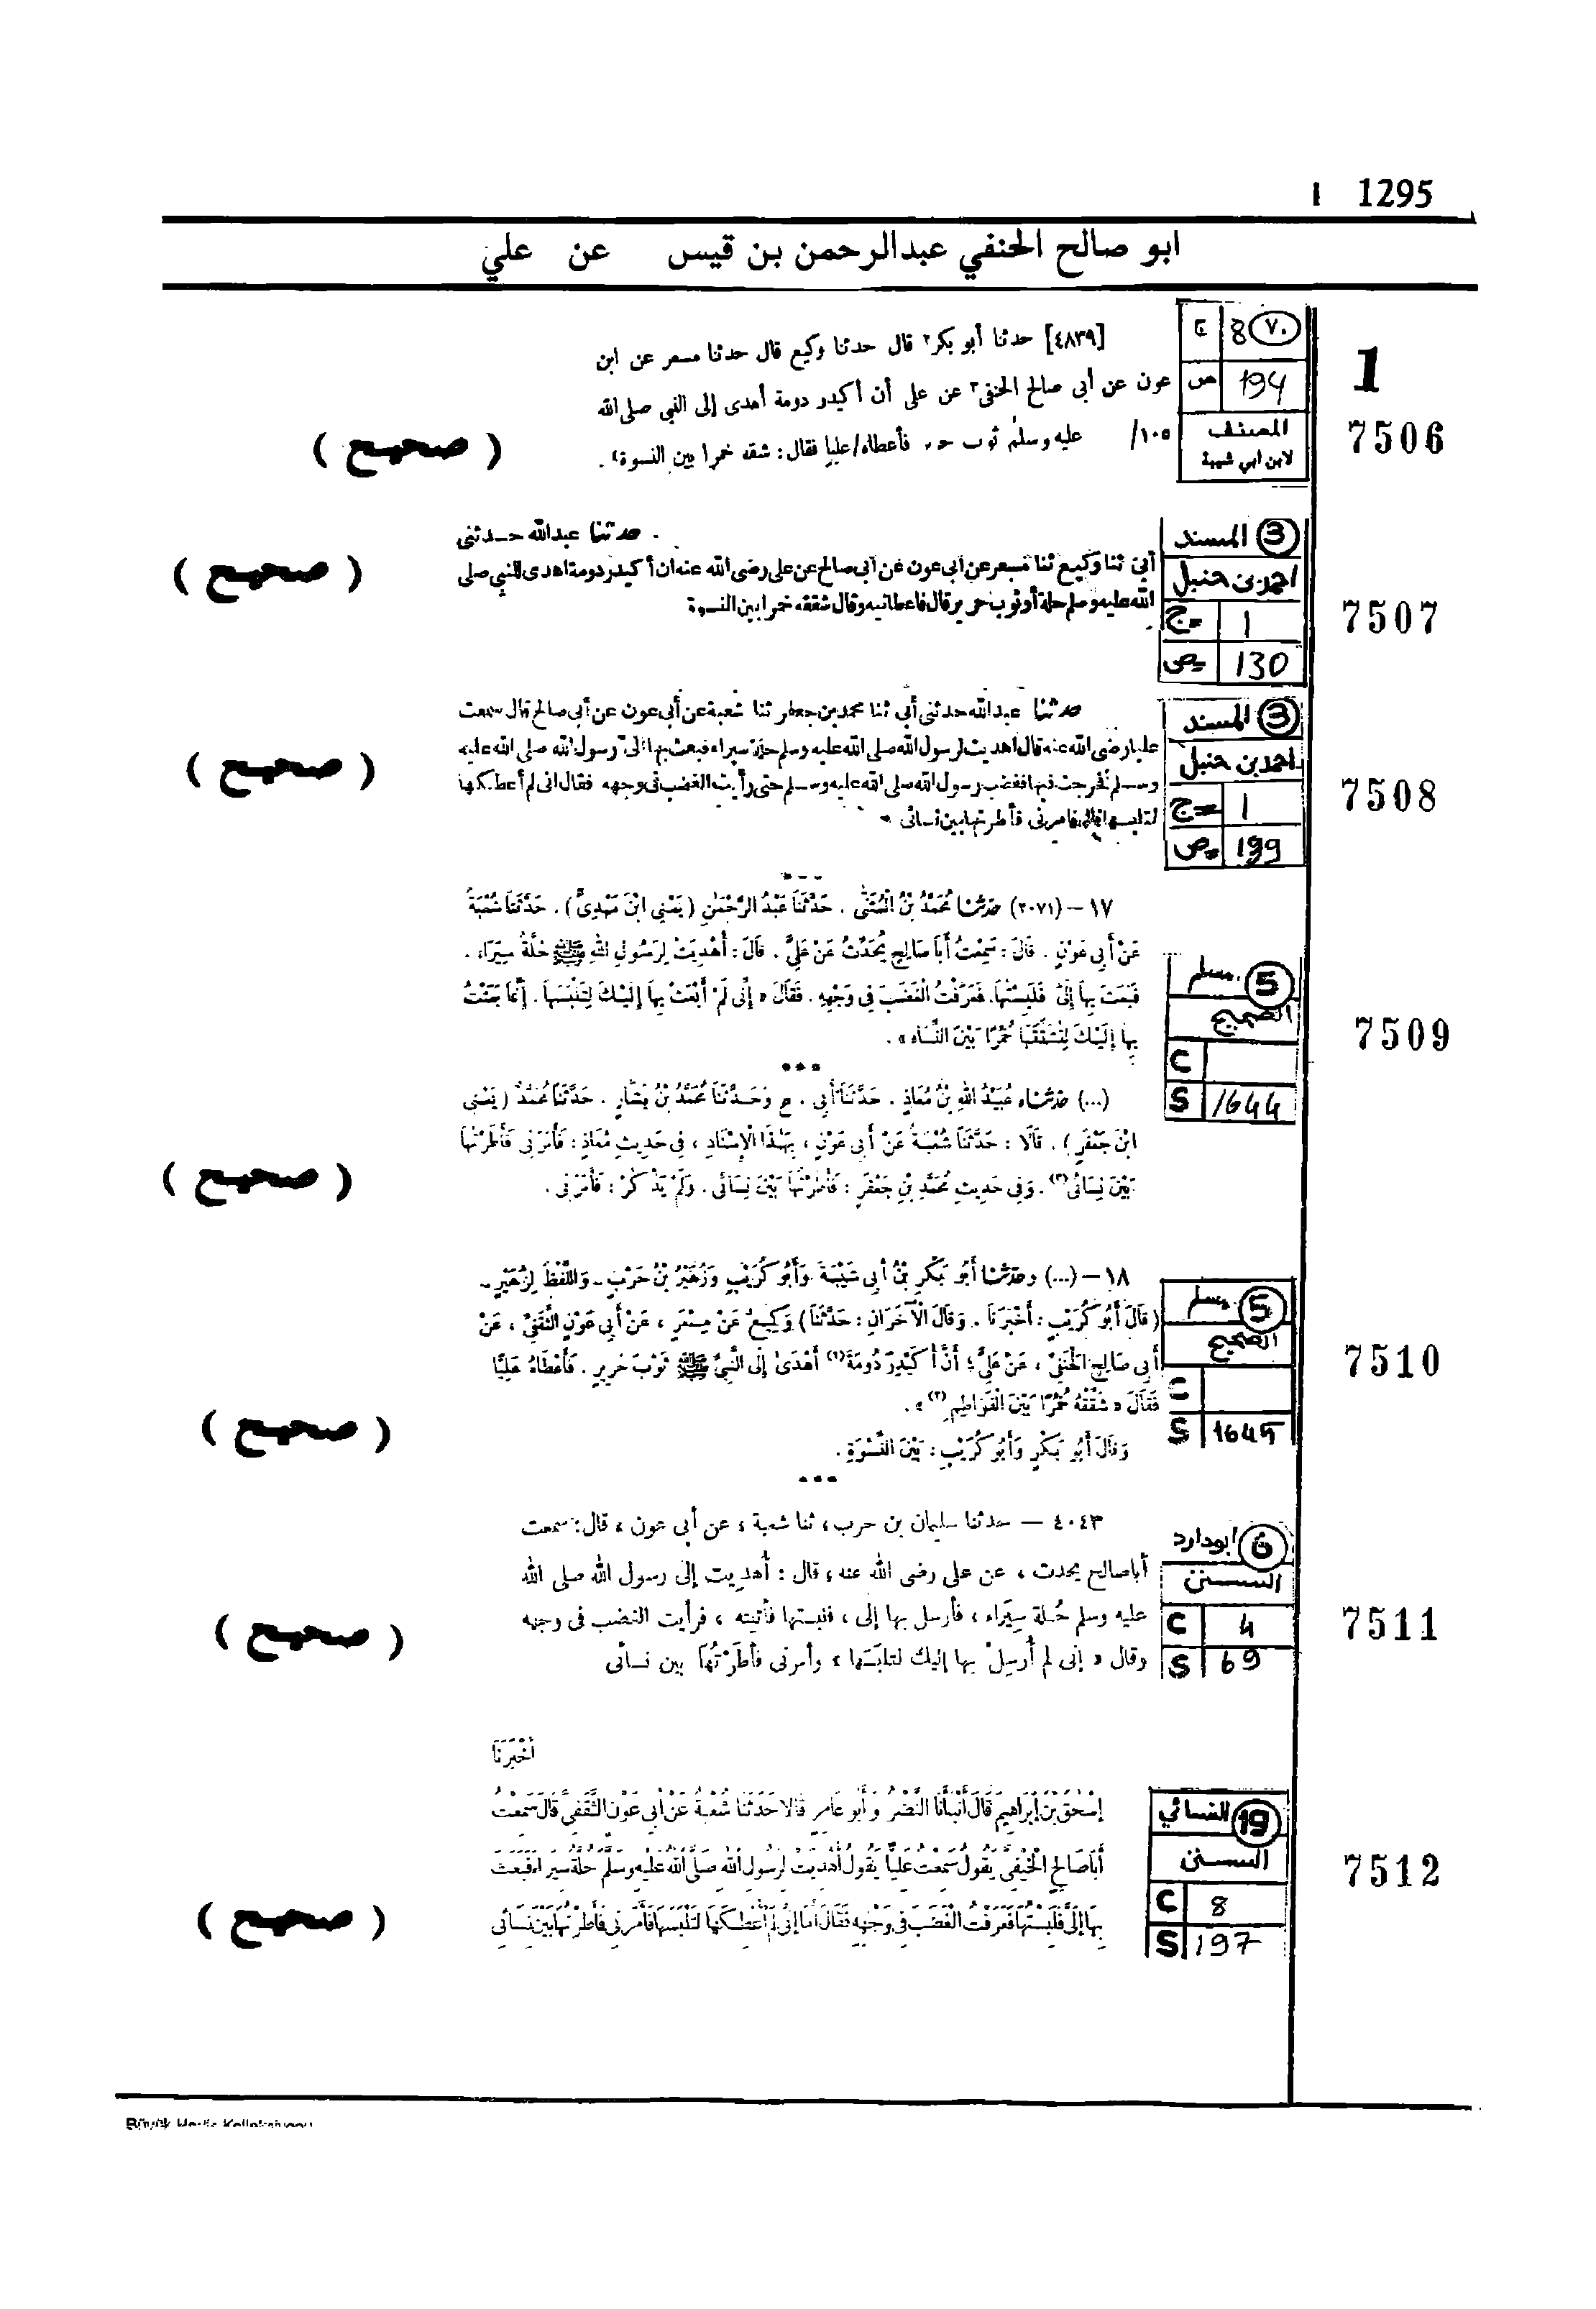 1295
ابو صالح الحنفي عبدالرحمن بن قيس عن علي
1
7506
٧٠ 8 ج
194 ص
المصنف
لابن ابي شيبة
[٤٨٣٩] حدثنا أبو بكر٢ قال حدثنا وكيع قال حدثنا مسعر عن ابن
عون عن أبي صالح الحنفي٣ عن علي أن أكيدر دومة أهدى إلى النبي صلى الله
١٠٥/ عليه وسلم ثوب فأعطاه/عليا فقال: شقه خمرا بين النسوة٤ .
( صحيح )
7507
3 المسند
احمد بن حنبل
ج 1
ص 130
حدثنا عبدالله حدثنى
أبي ثنا وكيع ثنا مسعر عن أبى عون عن أبى صالح عن على رضى الله عنه ان أكيدر دومة اهدى للنبي صلى
الله عليه وسلم حلة أو ثوب حرير قال فاعطانيه وقال شققه خمرا بين النسوة
( صحيح )
7508
3 المسند
احمد بن حنبل
ج 1
ص 199
حدثنا عبدالله حدثنى أبى ثنا محمد بن جعفر ثنا شعبة عن أبى عون عن أبى صالح قال سمعت
عليا رضى الله عنه قال أهديت لرسول الله صلى الله عليه وسلم حلة سيراء فبعث بها الى رسول الله صلى الله عليه
وسلم فخرجت فيها فغضب رسول الله صلى الله عليه وسلم حتى رأيت الغضب فى وجهه فقال انى لم أعطكها
لتلبسها قال فامرنى فأطرتها بين نسائى
( صحيح )
7509
5 مسلم
الصحيح
C
S 1644
١٧ – (٢٠٧١) حَدَّثَنَا مُحَمَّدُ بْنُ الْمُثَنَّى . حَدَّثَنَا عَبْدُ الرَّحْمَٰنِ ( يَعْنِي ابْنَ مَهْدِيٍّ ) . حَدَّثَنَا شُعْبَةُ
عَنْ أَبِي عَوْنٍ . قَالَ : سَمِعْتُ أَبَا صَالِحٍ يُحَدِّثُ عَنْ عَلِيٍّ . قَالَ : أُهْدِيَتْ لِرَسُولِ اللهِ ﷺ حُلَّةُ سِيَرَاءَ .
فَبَعَثَ بِهَا إِلَىَّ فَلَبِسْتُهَا. فَعَرَفْتُ الْغَضَبَ فِي وَجْهِهِ . فَقَالَ « إِنِّى لَمْ أَبْعَثْ بِهَا إِلَيْكَ لِتَلْبَسَهَا . إِنَّمَا بَعَثْتُ
بِهَا إِلَيْكَ لِتُشَقِّقَهَا خُمُرًا بَيْنَ النِّسَاء » .
***
(...) حَدَّثَنَاه عُبَيْدُ اللهِ بْنُ مُعَاذٍ . حَدَّثَنَا أَبِي . ح وَحَدَّثَنَا مُحَمَّدُ بْنُ بَشَّارٍ . حَدَّثَنَا مُحَمَّدٌ ( يَعْنِي
ابْنَ جَعْفَرٍ ) . قَالَا : حَدَّثَنَا شُعْبَةُ عَنْ أَبِي عَوْنٍ ، بِهٰذَا الْإِسْنَادِ ، فِي حَدِيثِ مُعَاذٍ : فَأَمَرَنِي فَأَطَرْتُهَا
بَيْنَ نِسَائِي(٣) . وَفِي حَدِيثِ مُحَمَّدِ بْنِ جَعْفَرٍ : فَأَطَرْتُهَا بَيْنَ نِسَائِي . وَلَمْ يَذْكُرْ : فَأَمَرَنِي .
( صحيح )
7510
5 مسلم
الصحيح
C
S 1645
١٨ – (...) وحَدَّثَنَا أَبُو بَكْرِ بْنُ أَبِي شَيْبَةَ وَأَبُو كُرَيْبٍ وَزُهَيْرُ بْنُ حَرْبٍ – وَاللَّفْظُ لِزُهَيْرٍ –
( قَالَ أَبُو كُرَيْبٍ : أَخْبَرَنَا . وَقَالَ الْآخَرَانِ : حَدَّثَنَا ) وَكِيعٌ عَنْ مِسْعَرٍ ، عَنْ أَبِي عَوْنٍ الثَّقَفِيِّ ، عَنْ
أَبِي صَالِحٍ الْحَنَفِيِّ ، عَنْ عَلِيٍّ ؛ أَنَّ أُكَيْدِرَ دُومَةَ(١) أَهْدَىٰ إِلَى النَّبِيِّ ﷺ ثَوْبَ حَرِيرٍ . فَأَعْطَاهُ عَلِيًّا
فَقَالَ « شَقِّقْهُ خُمُرًا بَيْنَ الْفَوَاطِمِ(٢) » .
وَقَالَ أَبُو بَكْرٍ وَأَبُو كُرَيْبٍ : بَيْنَ النِّسْوَةِ .
***
( صحيح )
7511
6 ابوداود
السنن
C 4
S 69
٤٠٤٣ — حدثنا سليمان بن حرب ، ثنا شعبة ، عن أبى عون ، قال : سمعت
أبا صالح يحدث ، عن على رضى الله عنه ، قال : أُهديت إلى رسول الله صلى الله
عليه وسلم حُلة سِيَراء ، فأرسل بها إلى ، فلبستها فأتيته ، فرأيت الغضب فى وجهه
وقال « إنى لم أُرسِلْ بها إليك لتلبَسَها » وأمرنى فأطَرْتُهَا بين نسائى
( صحيح )
7512
19 النسائي
السنن
C 8
S 197
أَخْبَرَنَا
إِسْحٰقُ بْنُ إِبْرَاهِيمَ قَالَ أَنْبَأَنَا النَّضْرُ وَأَبُو عَامِرٍ قَالَا حَدَّثَنَا شُعْبَةُ عَنْ أَبِي عَوْنٍ الثَّقَفِيِّ قَالَ سَمِعْتُ
أَبَا صَالِحٍ الْحَنَفِيَّ يَقُولُ سَمِعْتُ عَلِيًّا يَقُولُ أُهْدِيَتْ لِرَسُولِ اللهِ صَلَّى اللهُ عَلَيْهِ وَسَلَّمَ حُلَّةُ سِيَرَاءَ فَبَعَثَ
بِهَا إِلَىَّ فَلَبِسْتُهَا فَعَرَفْتُ الْغَضَبَ فِي وَجْهِهِ فَقَالَ أَمَا إِنِّي لَمْ أُعْطِكَهَا لِتَلْبَسَهَا فَأَمَرَنِي فَأَطَرْتُهَا بَيْنَ نِسَائِي
( صحيح )